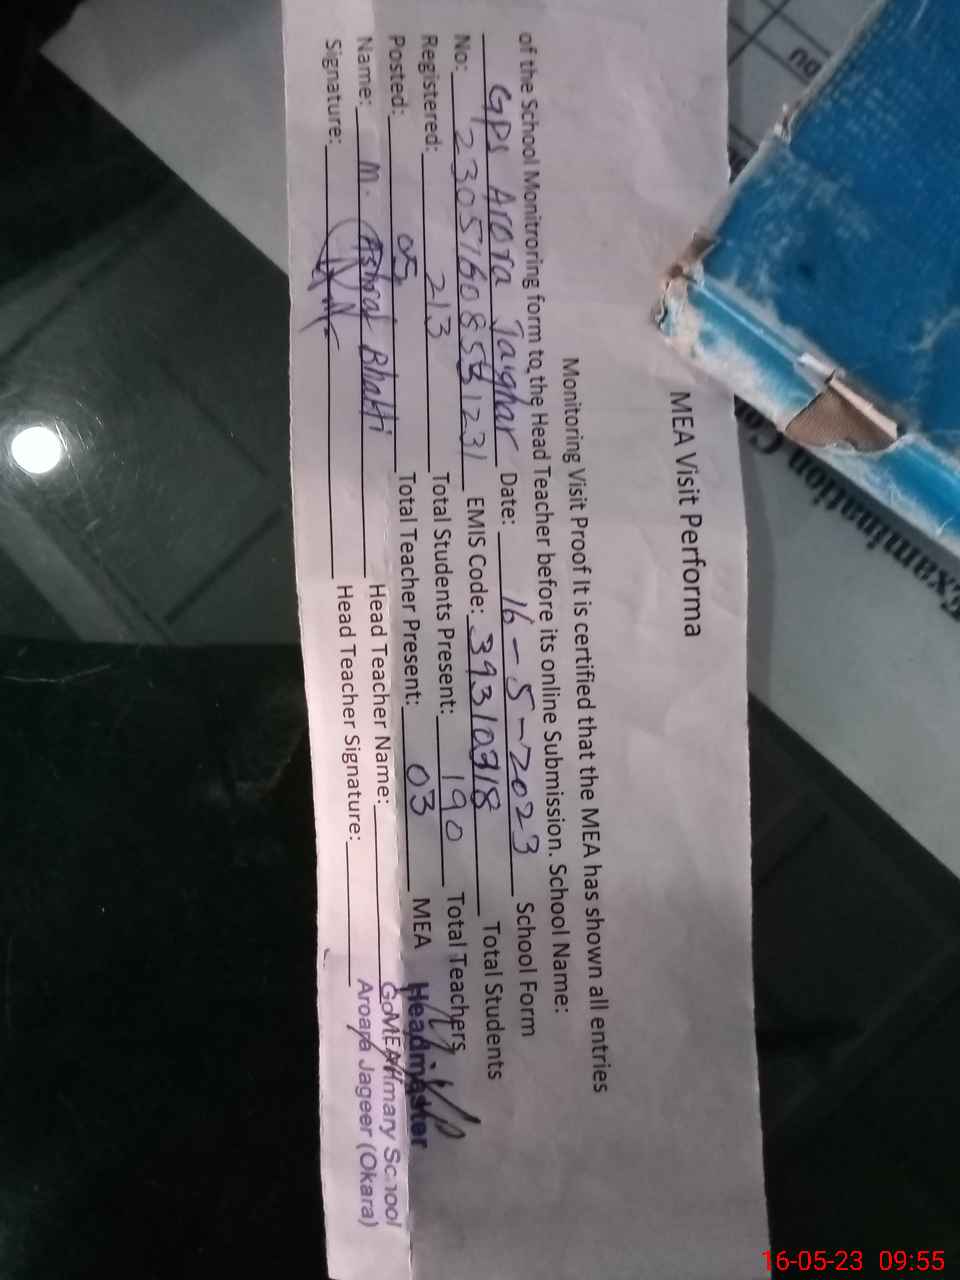 MEA Visit Performa
Monitoring Visit Proof It is certified that the MEA has shown all entries
of the School Monitroring form to the Head Teacher before its online Submission. School Name:
GPS Arora Jaighar Date: 16-5-2023 School Form
No: EMIS Code: 39310318 Total Students
Registered: 213 Total Students Present: 190 Total Teachers
Posted: 05 Total Teacher Present: 03 MEA
Name: M. Ashraf Bhatti Head Teacher Name: MEA
Signature: Head Teacher Signature:
Headmaster
Primary School
Aroara Jageer (Okara)
Examination
16-05-23 09:55